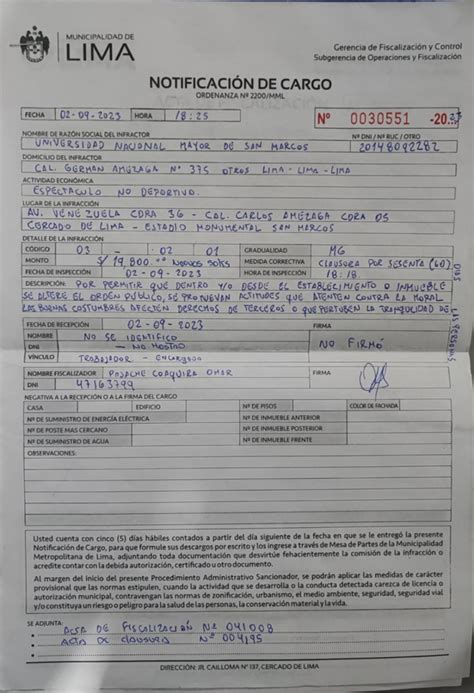 MUNICIPALIDAD DE
LIMA
Gerencia de Fiscalización y Control
Subgerencia de Operaciones y Fiscalización
NOTIFICACIÓN DE CARGO
ORDENANZA Nº 2200/MML
FECHA 02-09-2023 HORA 18:25
Nº 0030551 -2023
NOMBRE DE RAZÓN SOCIAL DEL INFRACTOR Nº DNI / Nº RUC / OTRO
UNIVERSIDAD NACIONAL MAYOR DE SAN MARCOS 20148092282
DOMICILIO DEL INFRACTOR
CAL. GERMAN AMEZAGA Nº 375 OTROS LIMA - LIMA - LIMA
ACTIVIDAD ECONÓMICA
ESPECTACULO NO DEPORTIVO.
LUGAR DE LA INFRACCIÓN
AV. VENEZUELA CDRA 36 - CAL. CARLOS AMEZAGA CDRA 05
CERCADO DE LIMA - ESTADIO MONUMENTAL SAN MARCOS
DETALLE DE LA INFRACCIÓN
CÓDIGO 03 - 02 01 GRADUALIDAD MG
MONTO S/ 19,800.00 NUEVOS SOLES MEDIDA CORRECTIVA CLAUSURA POR SESENTA (60) DIAS
FECHA DE INSPECCIÓN 02-09-2023 HORA DE INSPECCIÓN 18:18
DESCRIPCIÓN: POR PERMITIR QUE DENTRO Y/O DESDE EL ESTABLECIMIENTO O INMUEBLE
SE ALTERE EL ORDEN PUBLICO, SE PROMUEVAN ACTITUDES QUE ATENTEN CONTRA LA MORAL
LAS BUENAS COSTUMBRES AFECTEN DERECHOS DE TERCEROS O QUE PERTUBEN LA TRANQUILIDAD DE LAS PERSONAS
FECHA DE RECEPCIÓN 02-09-2023 FIRMA
NOMBRE NO SE IDENTIFICO
DNI - NO MOSTRO NO FIRMÓ
VÍNCULO TRABAJADOR - ENCARGADO
NOMBRE FISCALIZADOR COAQUIRA OMAR FIRMA
DNI 47163799
NEGATIVA A LA RECEPCIÓN O A LA FIRMA DEL CARGO
CASA EDIFICIO Nº DE PISOS COLOR DE FACHADA
Nº DE SUMINISTRO DE ENERGÍA ELÉCTRICA Nº DE INMUEBLE ANTERIOR
Nº DE POSTE MAS CERCANO Nº DE INMUEBLE POSTERIOR
Nº DE SUMINISTRO DE AGUA Nº DE INMUEBLE FRENTE
OBSERVACIONES:
Usted cuenta con cinco (5) días hábiles contados a partir del día siguiente de la fecha en que se le entregó la presente
Notificación de Cargo, para que formule sus descargos por escrito y los ingrese a través de Mesa de Partes de la Municipalidad
Metropolitana de Lima, adjuntando toda documentación que desvirtúe fehacientemente la comisión de la infracción o
acredite contar con la debida autorización, certificado u otro documento.
Al margen del inicio del presente Procedimiento Administrativo Sancionador, se podrán aplicar las medidas de carácter
provisional que las normas estipulen, cuando la actividad que se desarrolla o la conducta detectada carezca de licencia o
autorización municipal, contravengan las normas de zonificación, urbanismo, el medio ambiente, seguridad, seguridad vial
y/o constituya un riesgo o peligro para la salud de las personas, la conservación material y la vida.
SE ADJUNTA:
• ACTA DE FISCALIZACIÓN Nº 041008
• ACTA DE CLAUSURA Nº 004195
DIRECCIÓN: JR. CAILLOMA Nº 137, CERCADO DE LIMA